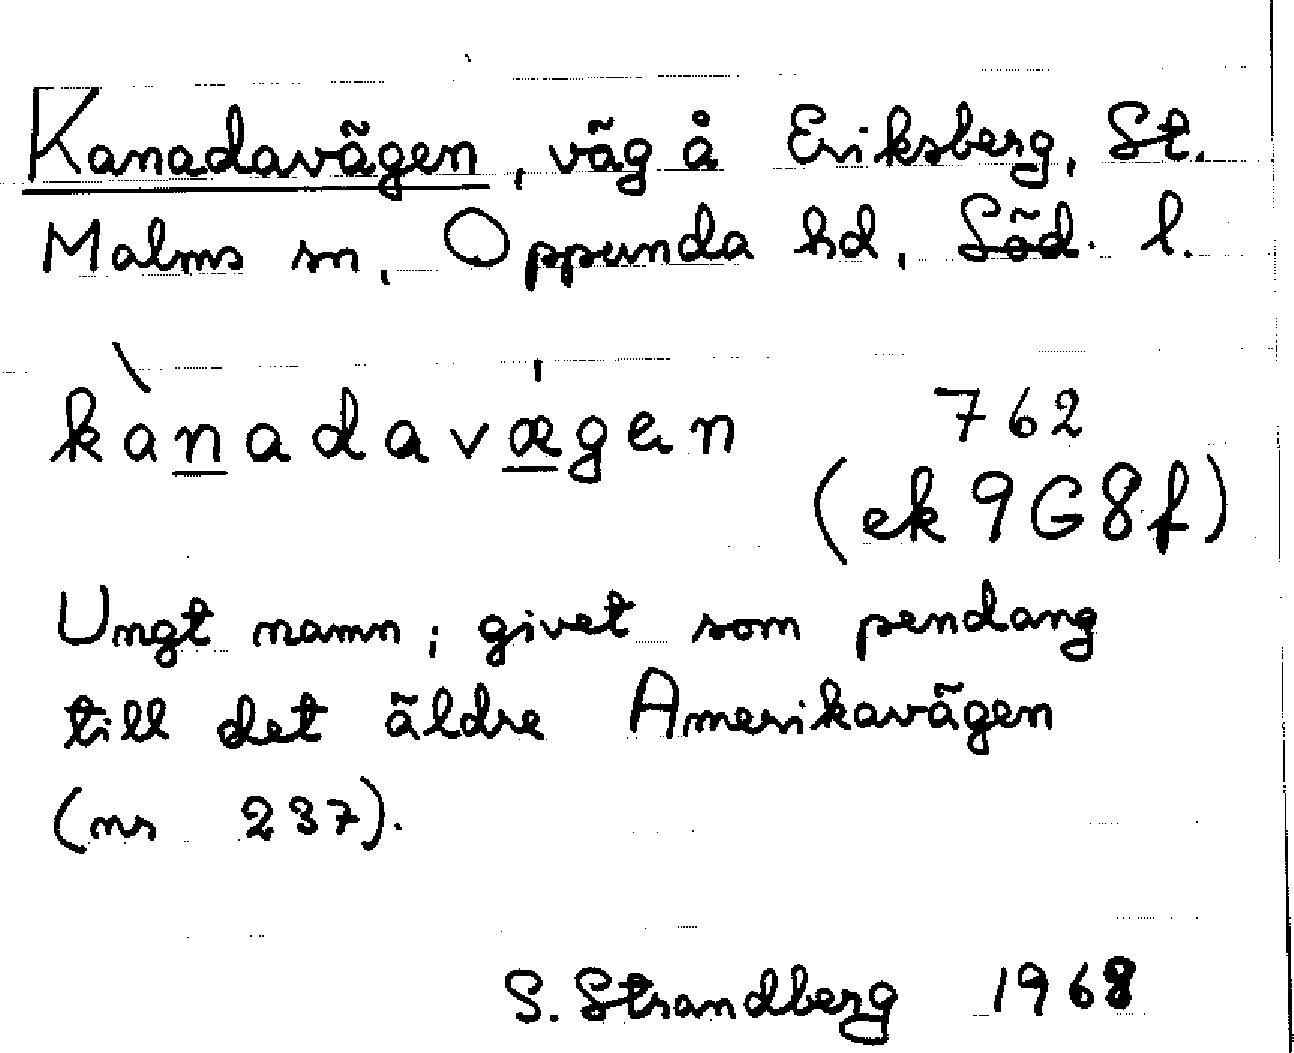 Kanadavägen, väg å Eriksberg, St.
Malms sn, Oppunda hd, Söd. l.
kànadavǽgen 762
(ek 9G8f)
Ungt namn; givet som pendang
till det äldre Amerikavägen
(nr 237).
S. Strandberg 1968